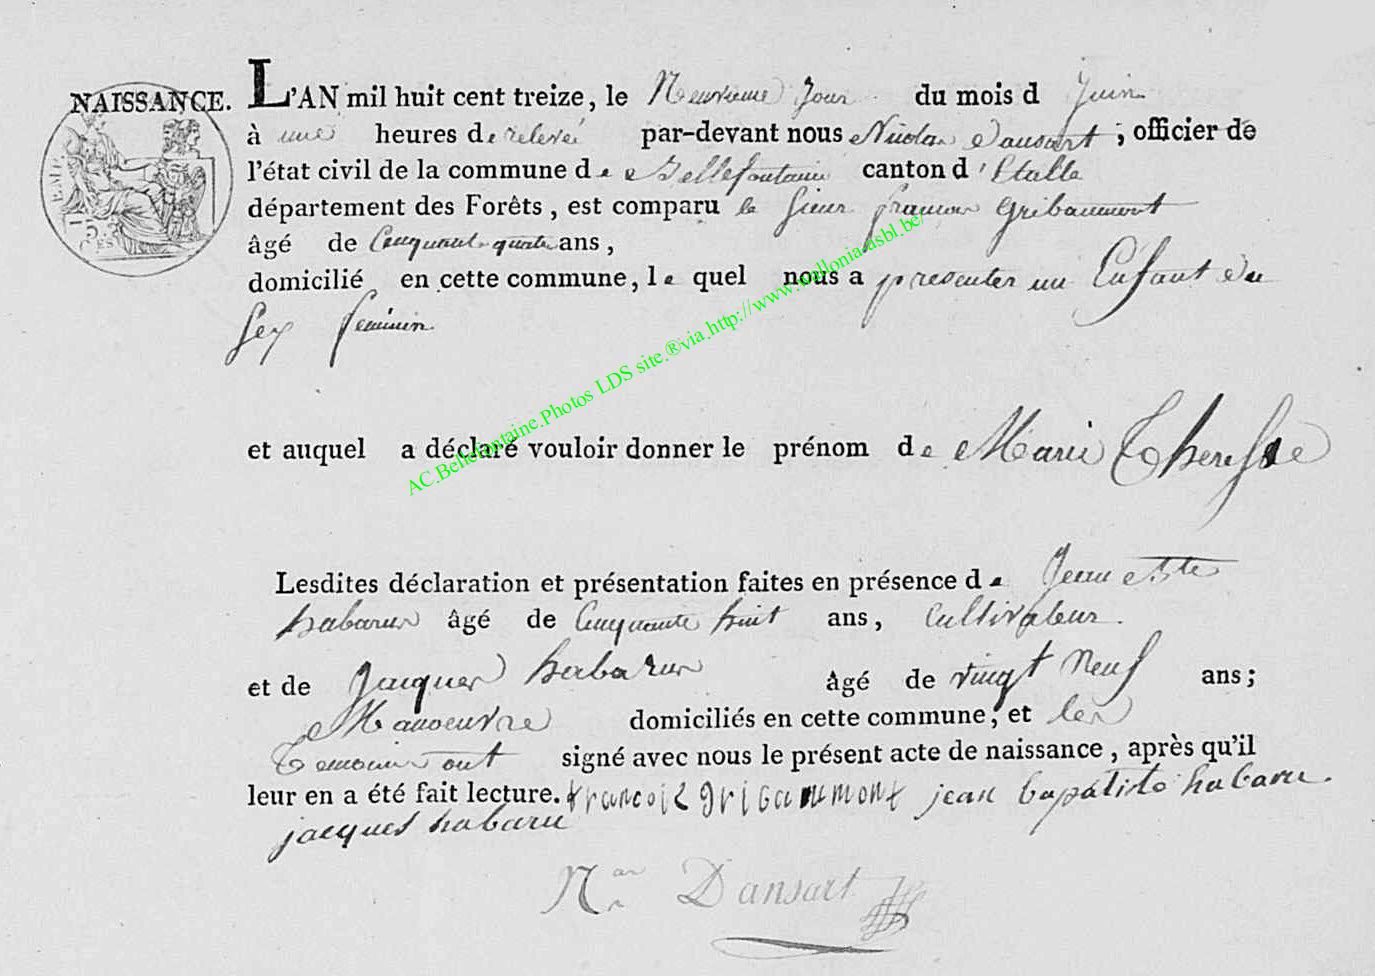 NAISSANCE. L'AN mil huit cent treize, le Neuvieme Jour du mois d Juin
à une heures de relevé par-devant nous Nicolas Dansart ; officier de
l'état civil de la commune de Bellefontaine canton d'Etalle
département des Forêts, est comparu le Sieur françois Gribaumont
âgé de Cinquante quatre ans,
domicilié en cette commune, le quel nous a presenter un Enfant du
Sex feminin
et auquel a déclaré vouloir donner le prénom de Marie Therese
Lesdites déclaration et présentation faites en présence de Jean Bte
habarux âgé de Cinquante huit ans, Cultivateur.
et de Jacques habarux âgé de vingt Neuf ans;
Manoeuvre domiciliés en cette commune, et les
Temoins ont signé avec nous le présent acte de naissance, après qu'il
leur en a été fait lecture. francois gribaumont jean bapatiste habaru.
jacques habaru
Nas Dansart
AC.Bellefontaine.Photos LDS site.®via.http://www.wallonia-asbl.be/